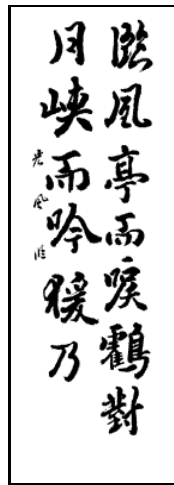 臨風亭而唳鶴對
月峽而吟猨乃